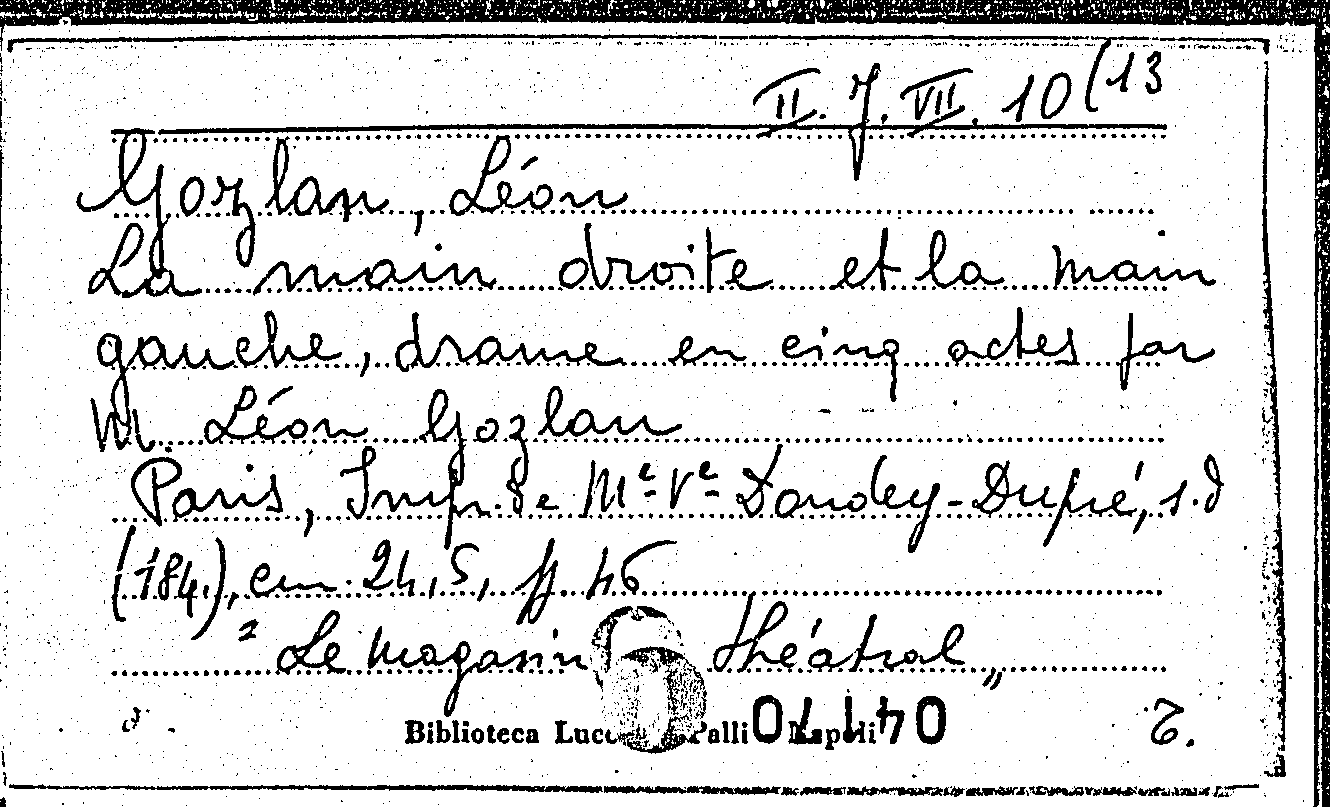 II. 7. VII. 10(13
Gozlan, Léon
La main droite et la main
gauche, drame en cinq actes par
M. Léon Gozlan
Paris, Impr. de Me Ve Dondey-Dupré, s.d
(184.), cm. 24,5, pp. 46
"Le magasin théatral"
Biblioteca Palli Napoli